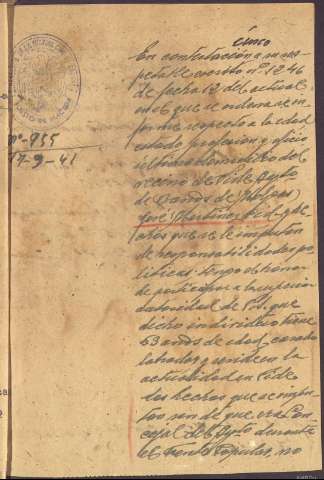 nº-955
17-9-41
cinco
En contestación a su res-
petable escrito nº 1246
de fecha 12 del actual
en el que se ordena se in-
forme respecto a la edad
estado profesion y oficio
ultimo domicilio del
vecino de Pide Ayto
de
José Martínez Vidal y he-
chos que se le imputan
de responsabilidades po-
liticas, tengo el honor
de participar a la superior
autoridad de Vd. que
dicho individuo tiene
53 años de edad, casado
labrador, y reside en la
actualidad en Pide
los hechos que se impu-
tan son de que era Con-
cejal del Ayto durante
el Frente Popular, no